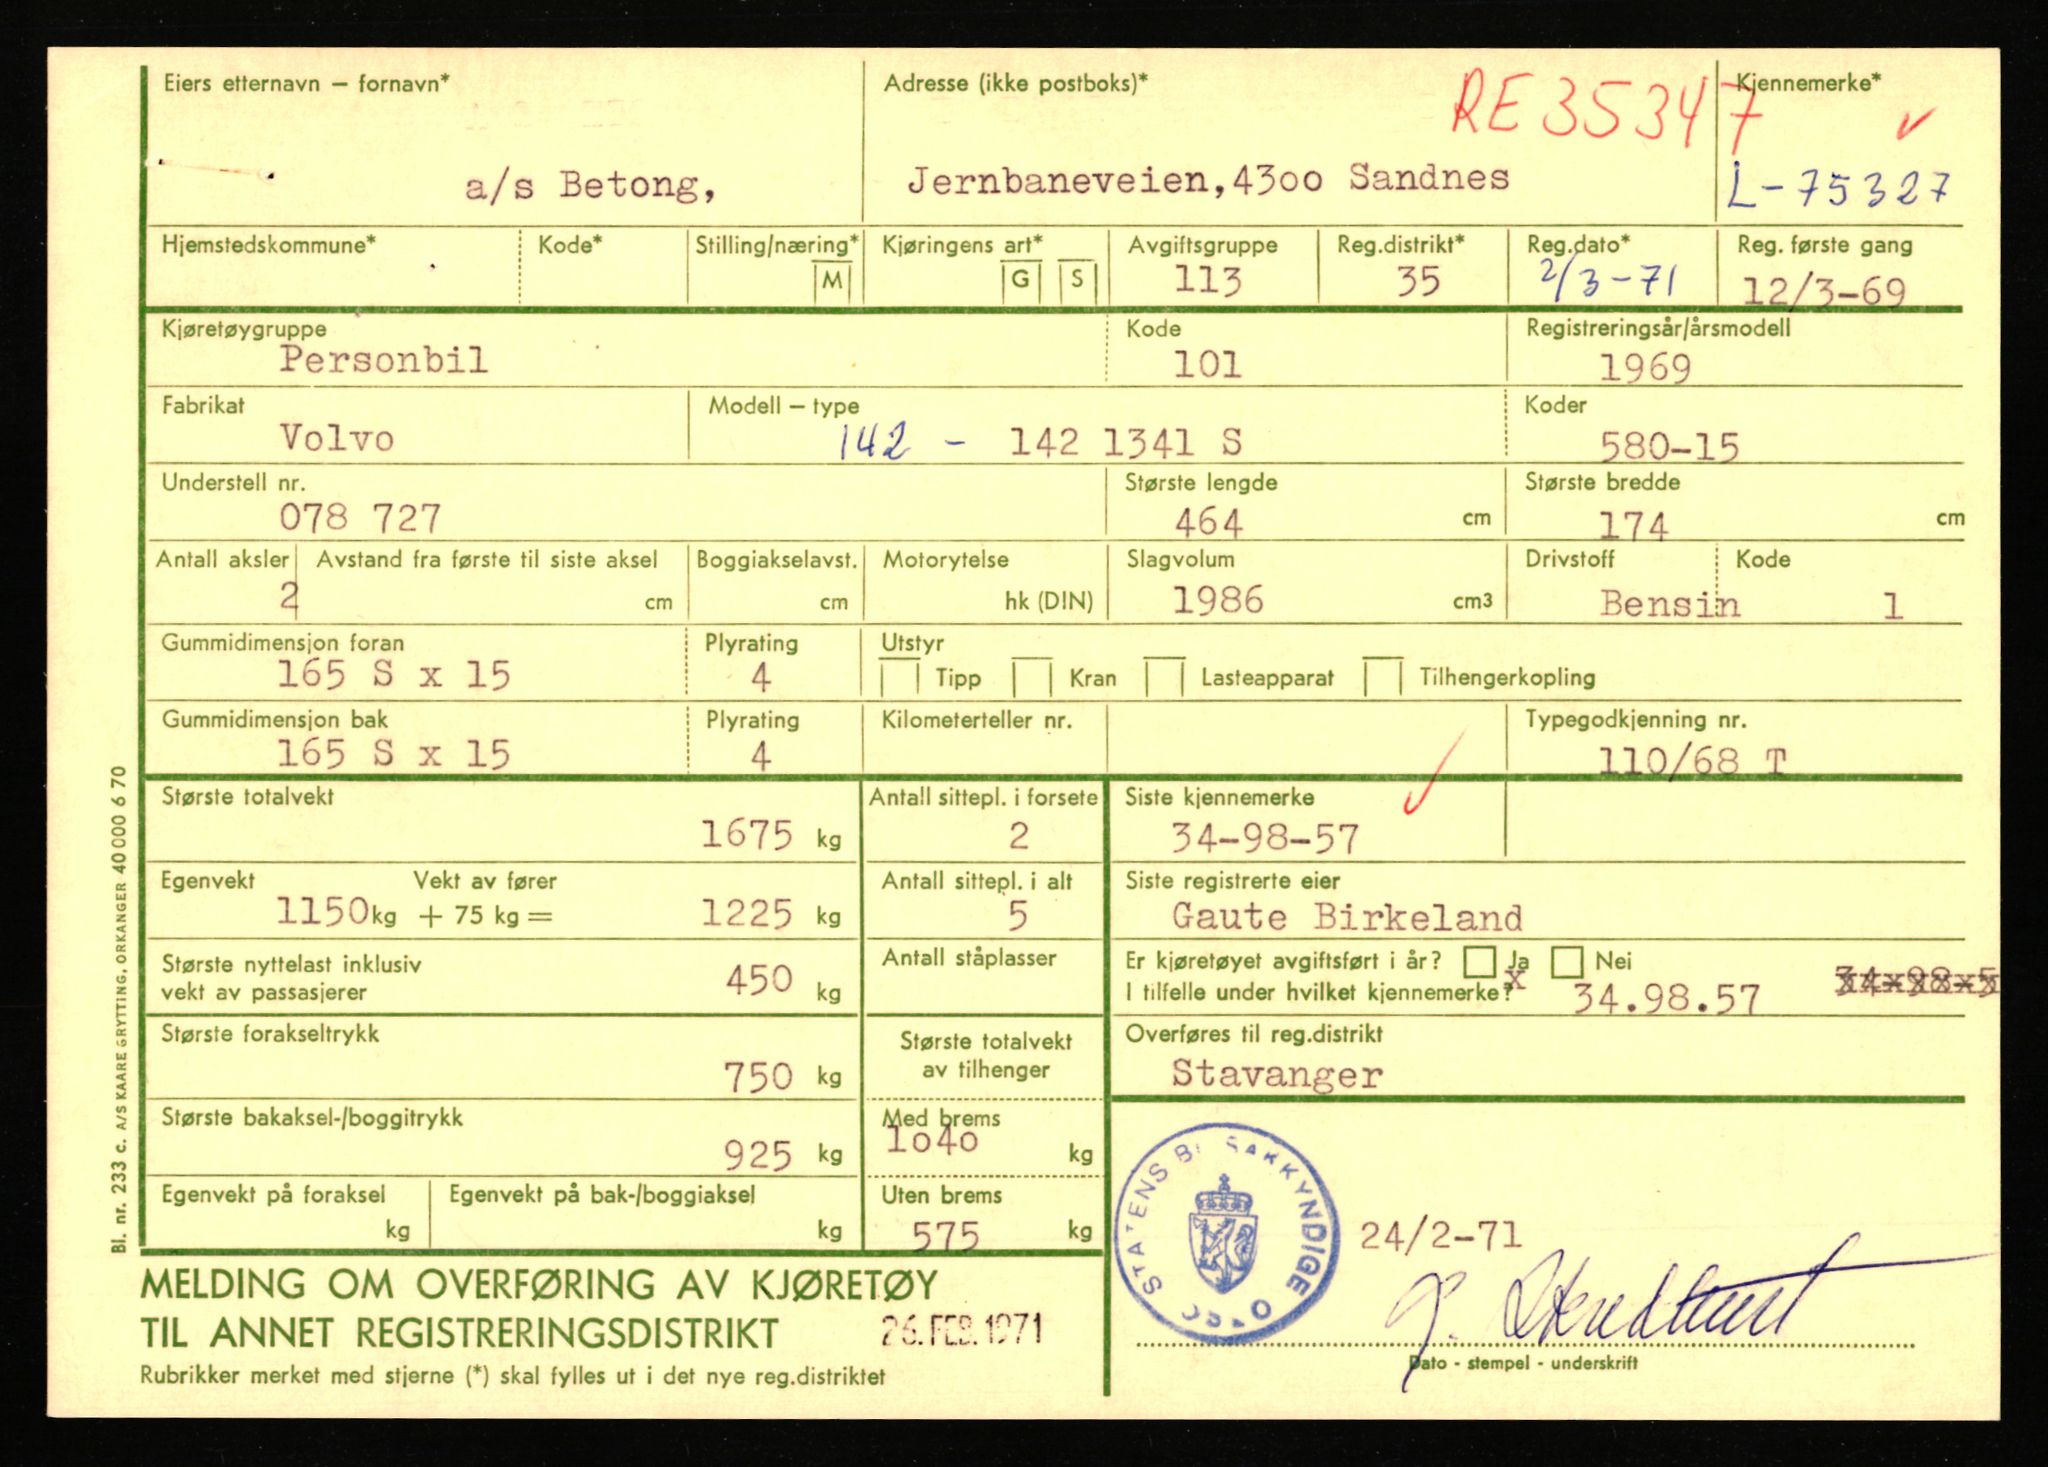 Eiers etternavn – fornavn* Adresse (ikke postboks)* RE 35347 Kjennemerke*
a/s Betong, Jernbaneveien, 4300 Sandnes L-75327
Hjemstedskommune* Kode* Stilling/næring* Kjøringens art* Avgiftsgruppe Reg.distrikt* Reg.dato* Reg. første gang
M G S 113 35 2/3-71 12/3-69
Kjøretøygruppe Kode Registreringsår/årsmodell
Personbil 101 1969
Fabrikat Modell – type Koder
Volvo 142 - 142 1341 S 580-15
Understell nr. Største lengde Største bredde
078 727 464 cm 174 cm
Antall aksler Avstand fra første til siste aksel Boggiakselavst. Motorytelse Slagvolum Drivstoff Kode
2 cm cm hk (DIN) 1986 cm3 Bensin 1
Gummidimensjon foran Plyrating Utstyr
165 S x 15 4 Tipp Kran Lasteapparat Tilhengerkopling
Gummidimensjon bak Plyrating Kilometerteller nr. Typegodkjenning nr.
165 S x 15 4 110/68 T
Største totalvekt Antall sittepl. i forsete Siste kjennemerke
1675 kg 2 34-98-57
Egenvekt Vekt av fører Antall sittepl. i alt Siste registrerte eier
1150 kg + 75 kg = 1225 kg 5 Gaute Birkeland
Største nyttelast inklusiv Antall ståplasser Er kjøretøyet avgiftsført i år? Ja Nei
vekt av passasjerer 450 kg I tilfelle under hvilket kjennemerke? x 34.98.57 34-98-5
Største forakseltrykk Største totalvekt Overføres til reg.distrikt
750 kg av tilhenger Stavanger
Største bakaksel-/boggitrykk Med brems
925 kg 1040 kg
Egenvekt på foraksel Egenvekt på bak-/boggiaksel Uten brems
kg kg 575 kg
STATENS BILSAKKYNDIGE OSLO
24/2-71
MELDING OM OVERFØRING AV KJØRETØY
TIL ANNET REGISTRERINGSDISTRIKT 26. FEB. 1971
Dato - stempel - underskrift
Rubrikker merket med stjerne (*) skal fylles ut i det nye reg.distriktet
Bl. nr. 233 c. A/S KAARE GRYTTING, ORKANGER 40 000 6 70